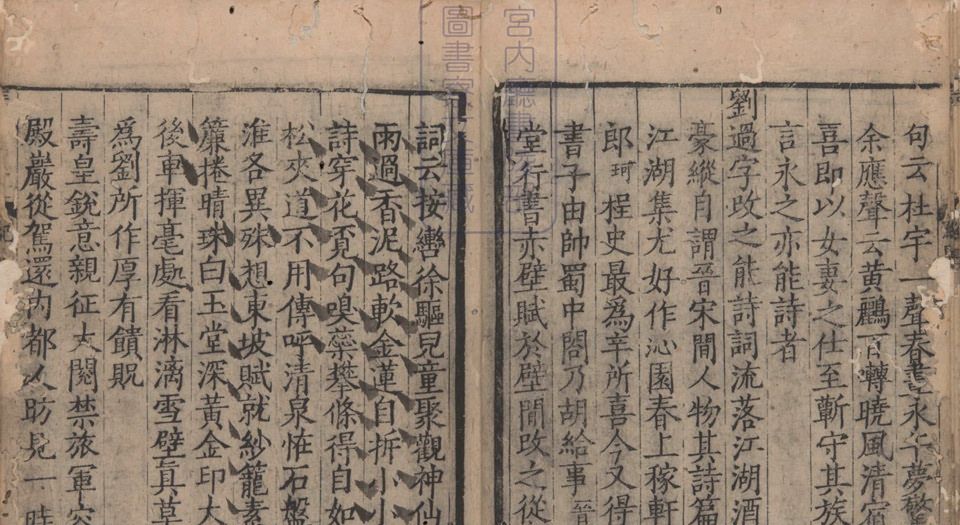 句云杜宇一聲春晝永午夢驚
余應聲云黃鸝百囀曉風清宿
喜即以女妻之仕至蘄守其族
言永之亦能詩者
劉過字改之能詩詞流落江湖酒
豪縱自謂晉宋間人物其詩篇
江湖集尤好作沁園春上稼軒
郎珂桯史最為辛所喜今又得
書子由帥蜀中閤乃胡給事晉
堂行書赤壁賦於壁間改之從
詞云按轡徐驅兒童聚觀神仙
雨過香泥路軟金蓮自拆小小
詩穿花覓句嗅蘂攀條得自如
松夾道不用傳呼清泉恠石盤
淮各異殊想東坡賦就紗籠素
簾捲晴珠白玉堂深黃金印大
後車揮毫處看淋漓雪壁眞草
為劉所作厚有饋貺
壽皇銳意親征大閱禁旅軍容
殿巖從駕還內都人昉見一時
宮内廳書
圖書寮
藏